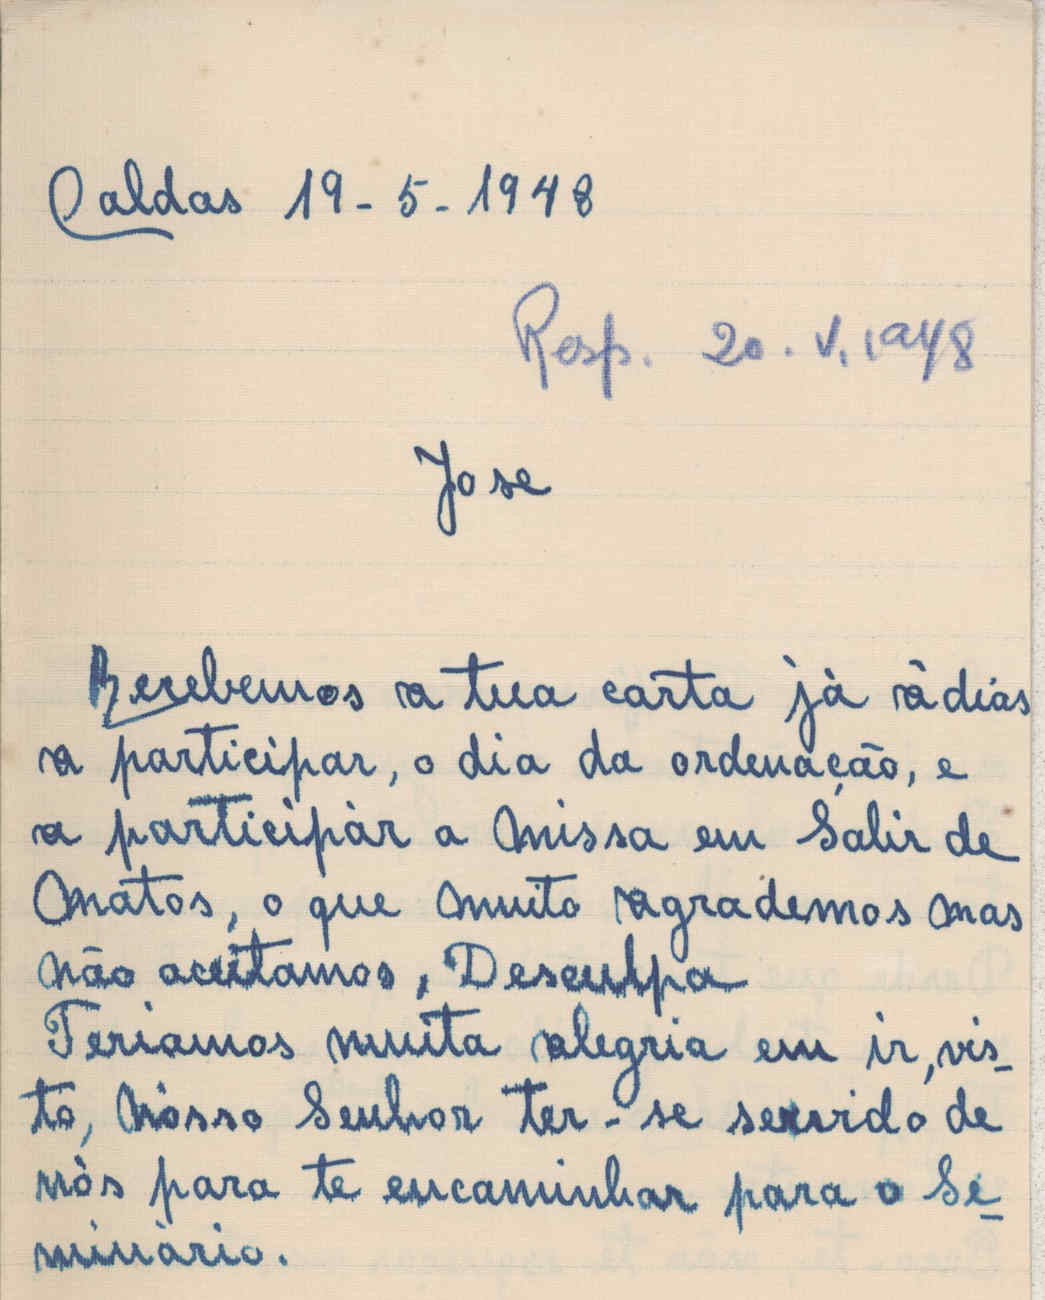 Caldas 19-5-1948
Resp. 20.V.1948
Jose
Recebemos a tua carta jà à dias
a participar, o dia da ordenação, e
a participàr a missa em Salir de
Matos, o que muito agrademos mas
não aceitamos, Desculpa
Teriamos muita alegria em ir, vis-
to, Nosso Senhor ter-se servido de
nòs para te encaminhar para o Se-
minàrio.